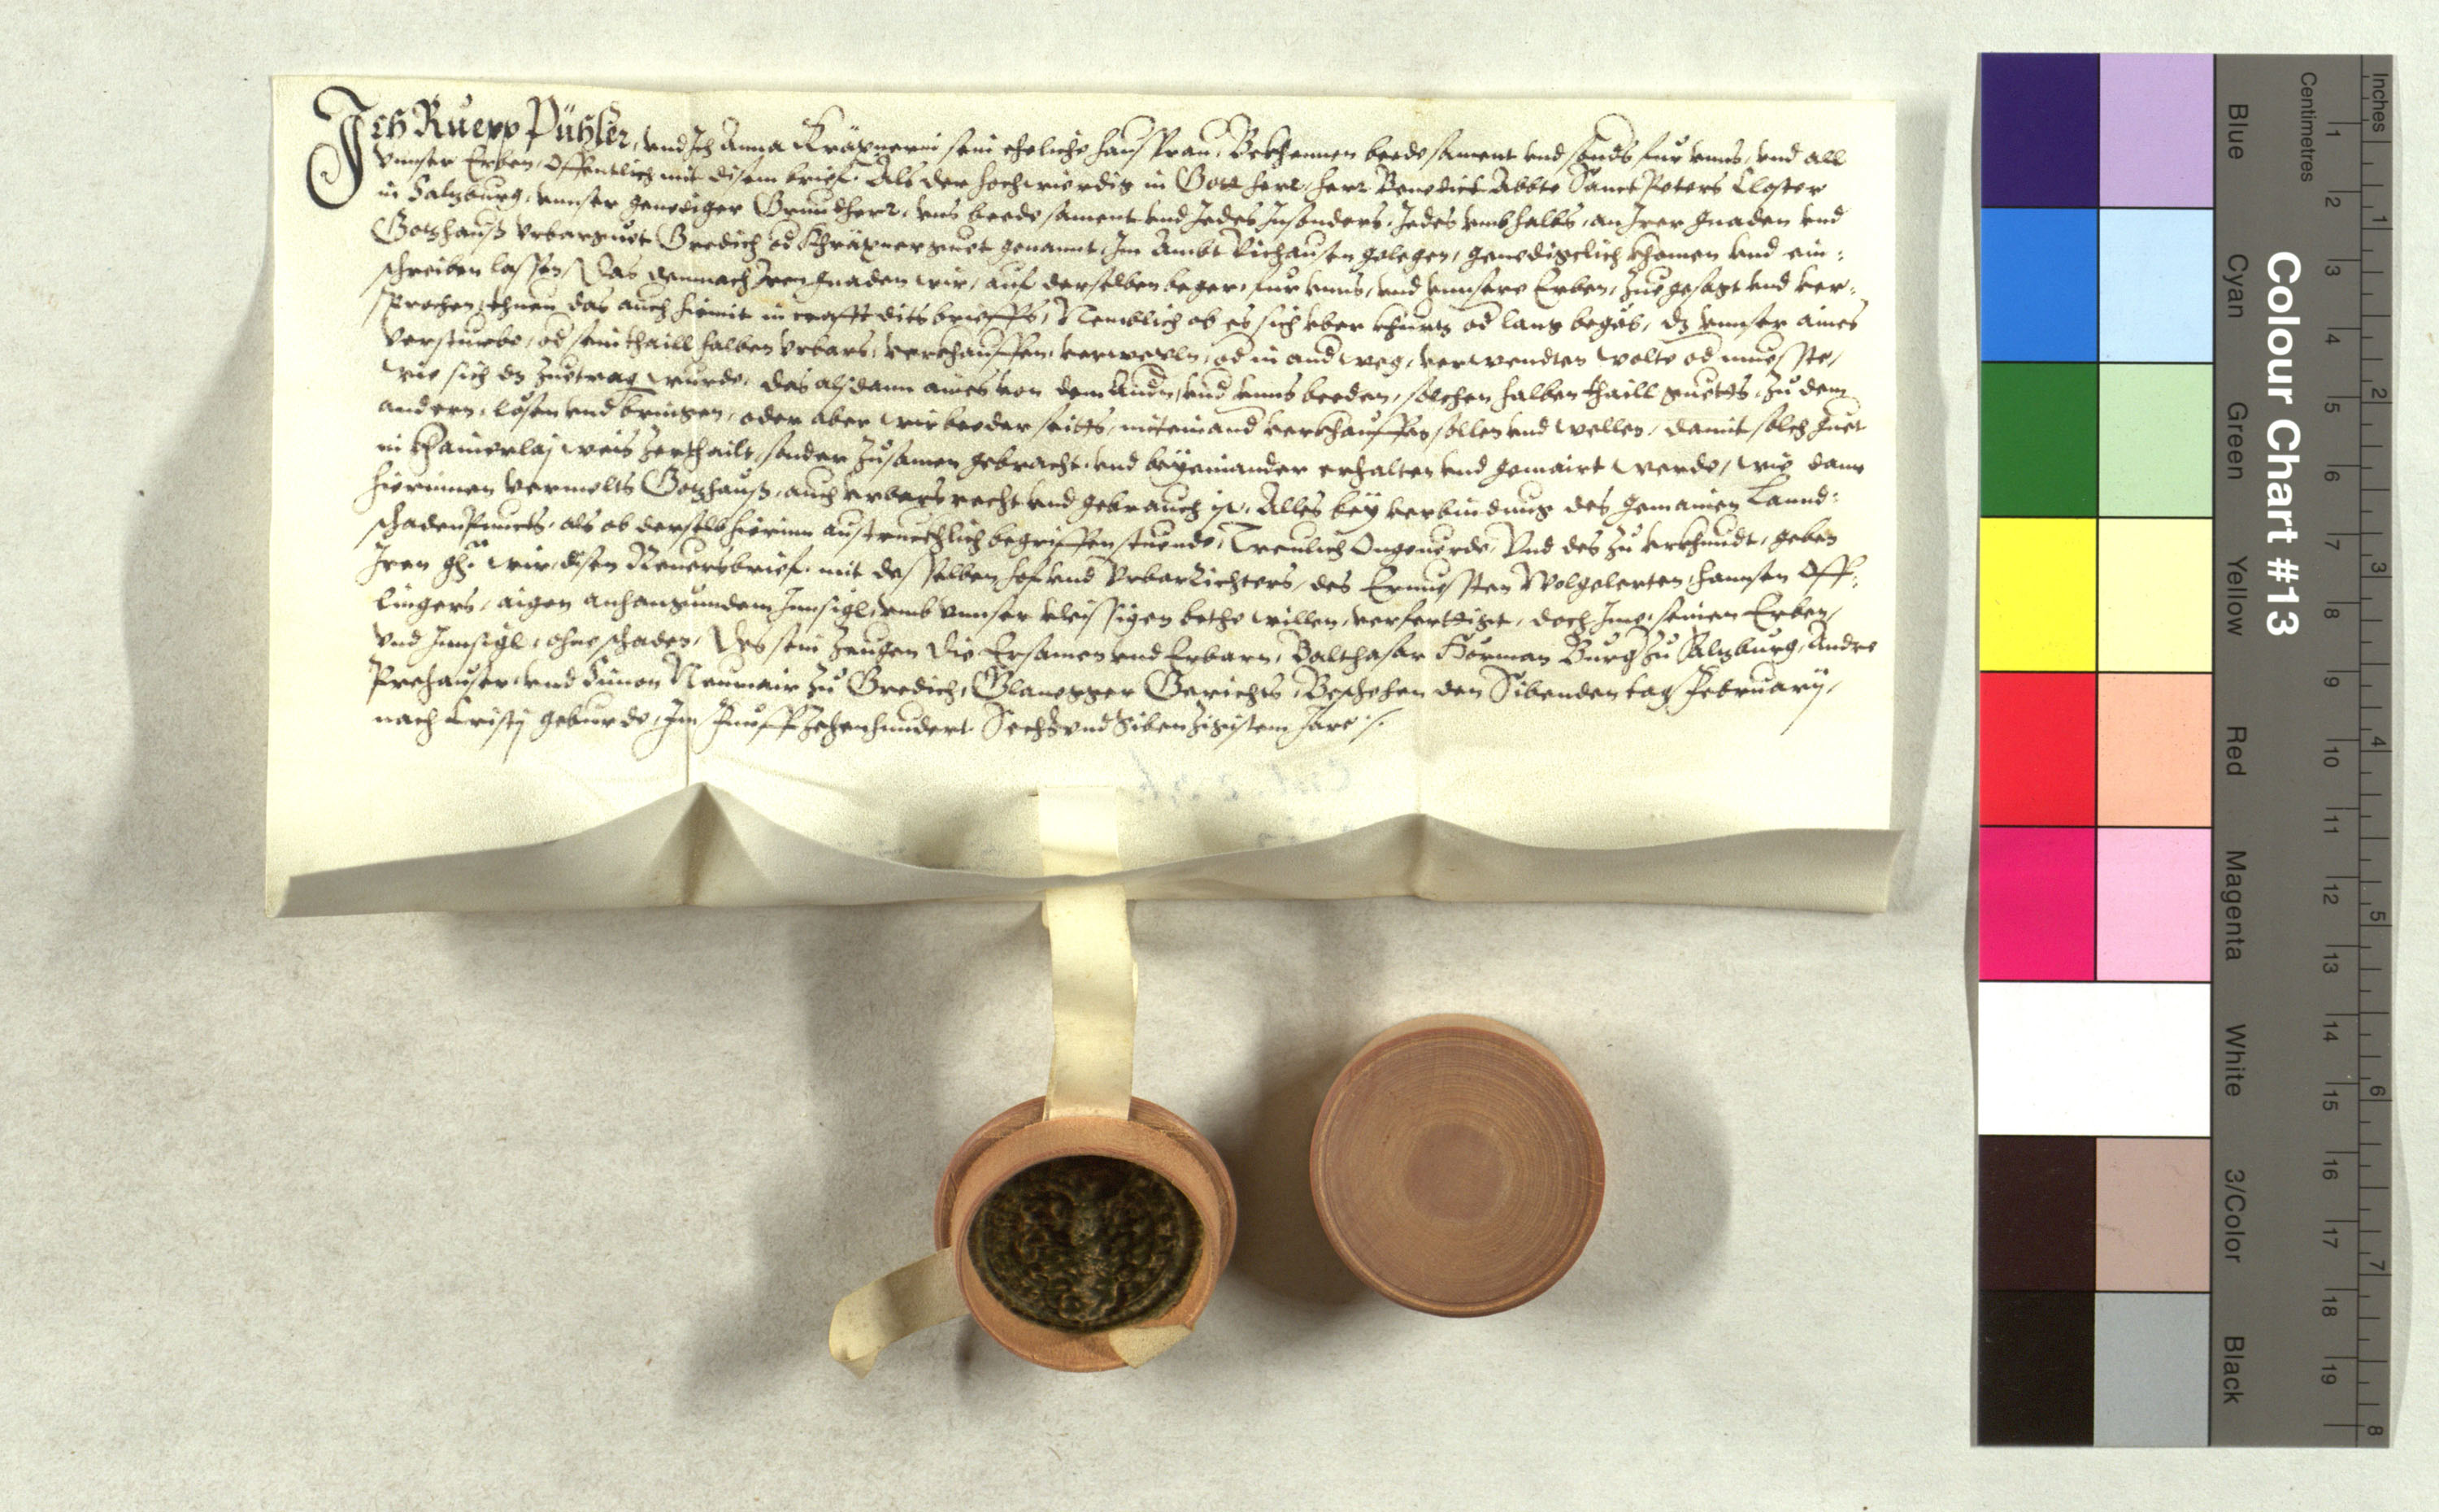 Ich Ruepp Pühler, vnd Ich Anna Kräxnerin sein eheliche hausfrau, Bekhennen beede sament vnd sonds fur vnns, vnd all
vnnser Erben, Offentlich mit disem brief. Als der hochwierdig in Gott herr, herr Benedict Abbte Sanct Peters Closter
in Saltzburg, vnnser genediger Grundtherr, vns beede sament vnd Jedes Insonders, Jedes vmb halbs, an Irer gnaden vnd
Gotzhauß vrbarguet Gredich od Khräxnerguet genannt, Im Ambt Vichausen gelegen, genedigclich khomen vnd ein:
schreiben lassen, Das demnach Iren gnaden wir, auf derselben beger, fur vnns, vnd vnnsere Erben, zuegesagt vnd ver:
sprochen, thuen das auch hiemit in crafft dits brieffs, Nemblich ob es sich vber khurtz od lang begäb, dz vnnser aines
versturbe, od sein thaill halben vrbars, verkhauffen, verwexln, od in and weg, verwendten wolte od muesste,
wie sich dz zuetrag wurde, das alsdann aines von dem Andn, vnd vnns beeden, solchen halben thaill guetts, zu dem
andern, lösen vnd bringen, oder aber wir beeder seitts, miteinand verkhauffen sollen vnd wellen, damit solch guet
in khainerlaj weis zerthailt, sonder zusamen gebracht, vnd beyeinander erhalten vnd gemairt werde, wie dann
hierinnen vermelts Gotzhauß, auch vrbarsrecht vnd gebrauch ist, Alles bey verbindung des gemainen Lannd:
schadenPuncts, als ob derselb hierinn austruckhlich begriffen stuende, Treulich Ongeuerde, Vnd des zu vrkhundt, geben
Iren gn. wir, disen Reuersbrief, mit desselben hof vnd Vrbarrichters, des Ernuessten Wolgelerten, hannsen Öff:
lingers, aigen anhangundem Innsigl, vmb vnnser vleissigen bethe willen, verferttigt, doch Ime, seinen Erben,
vnd Innsigl, ohne schaden, Des sein zeugen die Ersamen vnd Erbarn, Balthasar Hörman Burg zu Saltzburg, Andre
Prehauser, vnd Simon Neumair zu Gredich, Glanegger Gerichts, Beschehen den Sibenden tag February,
nach Cristj geburde, Im Funffzehenhundert Sechsvnd Sibenzigistem Jare ./.
Colour Chart #13
Blue
Cyan
Green
Yellow
Red
Magenta
White
3/Color
Black
Centimetres
1 2 3 4 5 6 7 8 9 10 11 12 13 14 15 16 17 18 19
Inches
1 2 3 4 5 6 7 8